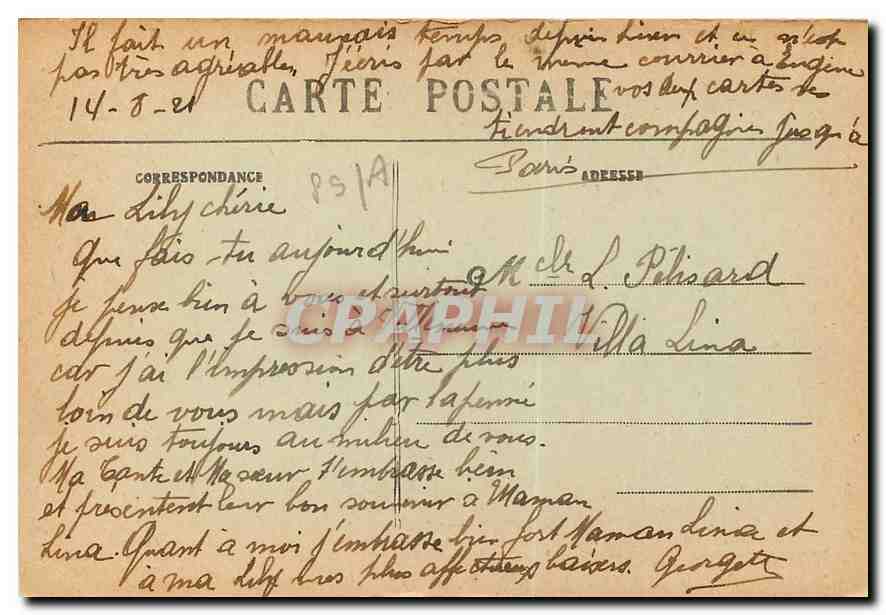 Il fait un mauvais temps depuis hier et ce n'est
pas très agréable, J'écris par le meme courrier à Eugène
vos deux cartes se
tiendront compagnies jusqu'à
Paris
14-8-21
CARTE POSTALE
CORRESPONDANCE
ADRESSE
PS/A
Ma Lily chérie
Que fais-tu aujourd'hui
je pense bien à vous et surtout
depuis que je suis à
car j'ai l'impression d'être plus
loin de vous mais par la penné
je suis toujours au milieu de vous.
Ma Tante et Ma soeur t'embrasse bein
et présentent leur bon souvenir à Maman
Lina. Quant à moi j'embrasse bien fort Maman Lina et
à ma Lily mes plus affectueux baisers. Georgette
Melle L. Pélisard
Villa Lina
CPAPHIL